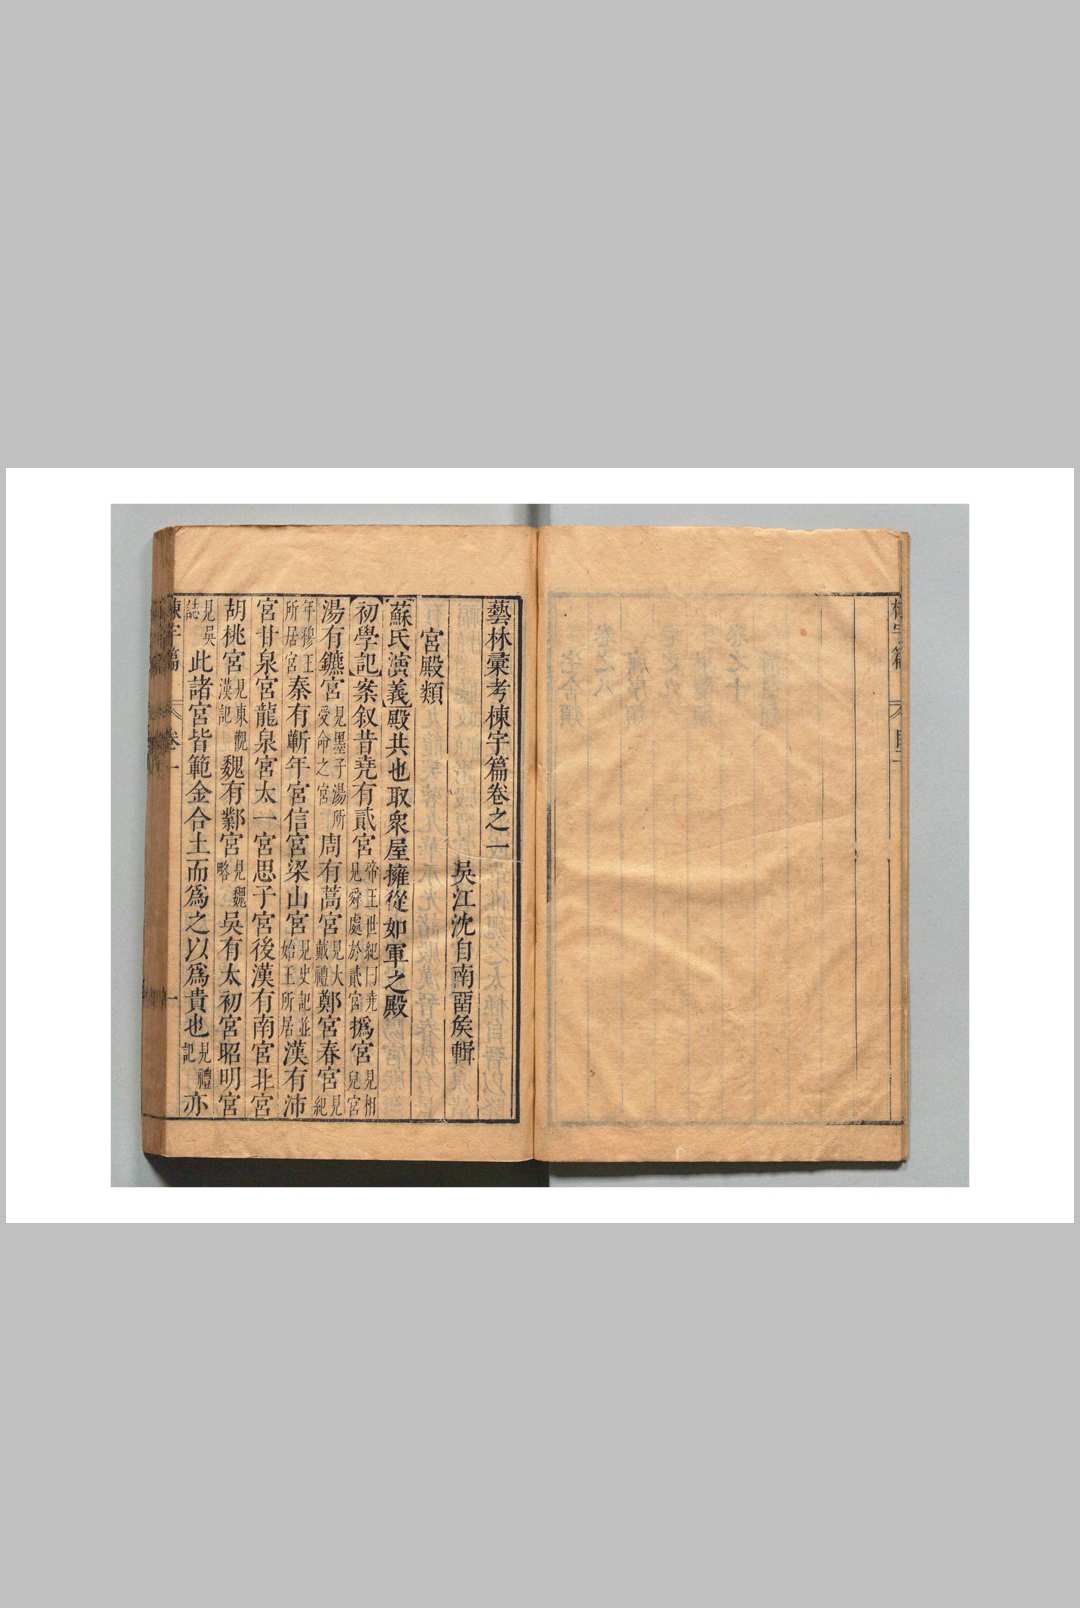 藝林彙考棟宇篇卷之一
吳江沈自南留矦輯
宮殿類
蘇氏演義殿共也取衆屋擁從如軍之殿
初學記案叙昔堯有貳宮帝王世紀曰堯見舜處於貳宮撝宮見相兒宮
湯有鑣宮見墨子湯所受命之宮周有蒿宮見大戴禮鄭宮春宮見紀
年穆王所居宮秦有蘄年宮信宮梁山宮見史記並始王所居漢有沛
宮甘泉宮龍泉宮太一宮思子宮後漢有南宮北宮
胡桃宮見東觀漢記魏有鄴宮見魏略吳有太初宮昭明宮
見吳誌此諸宮皆範金合土而爲之以爲貴也見禮記亦
棟宇篇 卷一 一